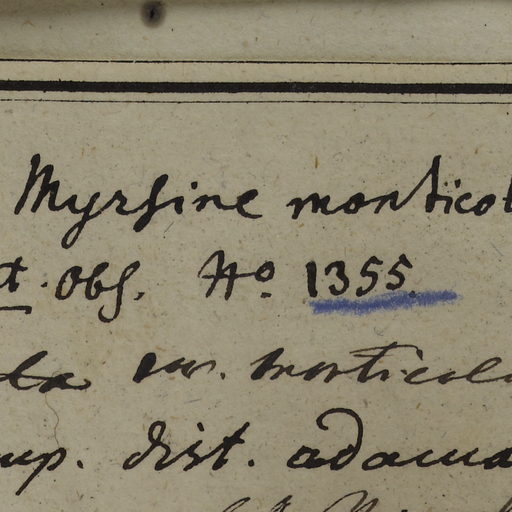 Myrsine monticol
t. Obs. No. 1355.
ta var. monticola
up. dist. adama